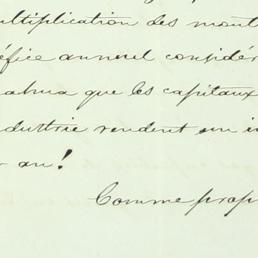 ultiplication des mont
éfice annuel considér
que les capitaux
dustrie rendent un i
an!
Comme prop